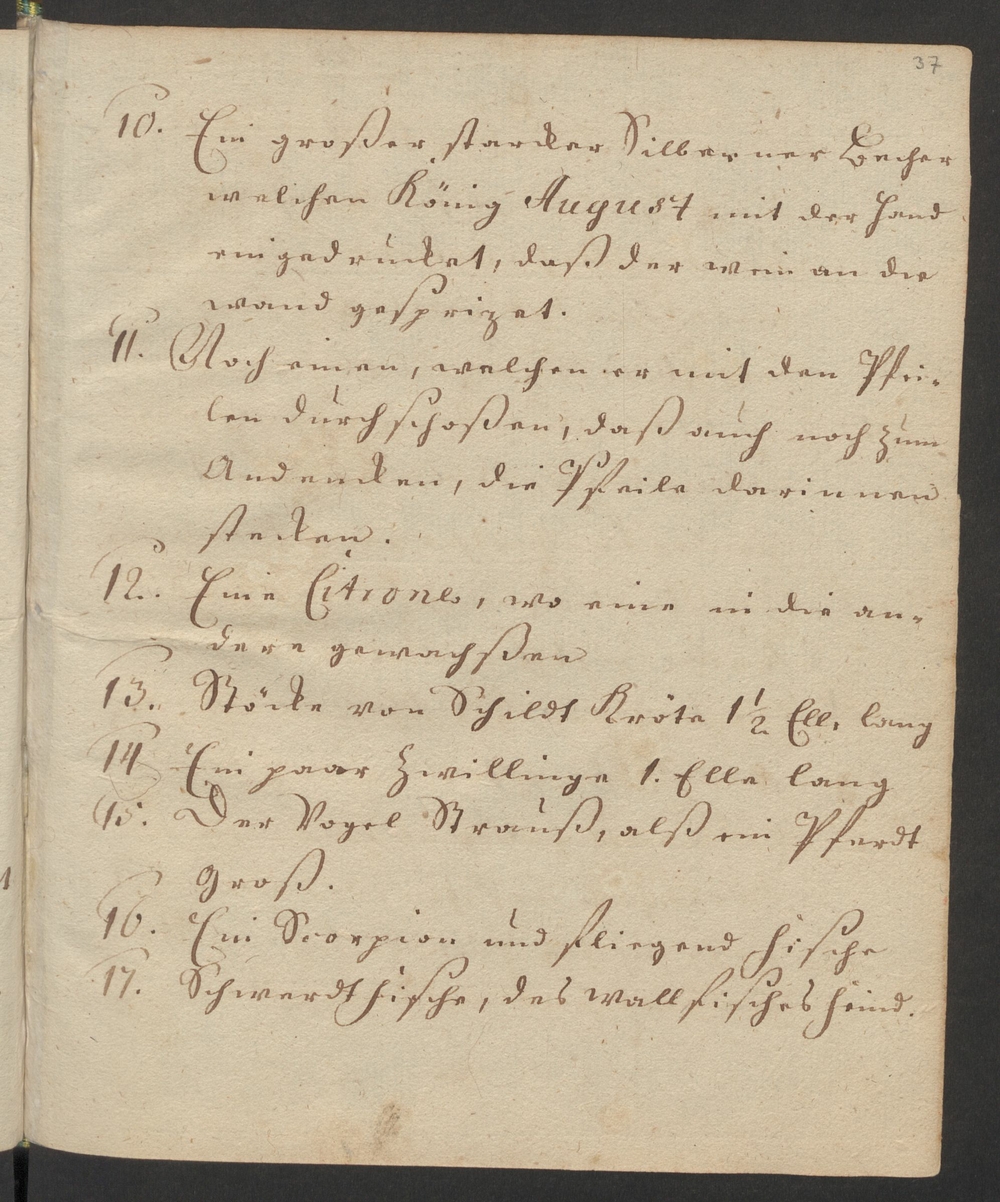 37
10. Ein großer starcker Silberner Becher
welchen König August mit der Hand
eingedrucket, daß der wein an die
wand gesprizet.
11. Noch einen, welchen er mit den Pfei-
len durchschoßen, daß auch noch zum
Andencken, die Pfeile darinnen
stecken.
12. Eine Citrone, wo eine in die an-
dere gewachßen
13. Stöcke von Schildt Kröte 1 1/2 Ell. lang
14 Ein paar Zwillinge 1. Elle lang
15. Der Vogel Strauß, alß ein Pferdt
Groß.
16. Ein Scorpion und fliegend Fische
17. Schwerdt Fische, des wallfisches Feind.